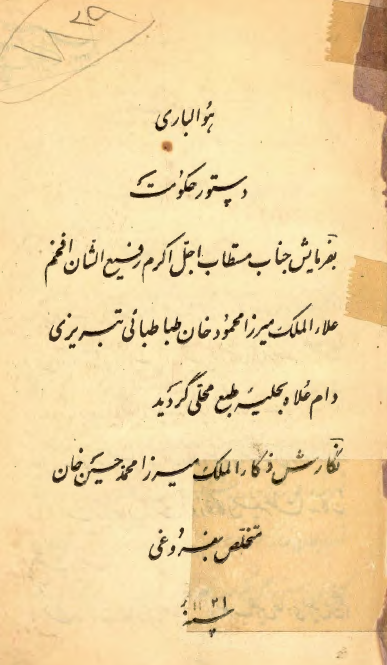 ۱۸۲۹
هوالباری
دستور حکومت
بفرمایش جناب مستطاب اجلّ اکرم رفیع الشّان افخم
علاء الملک میرزا محمود خان طباطبائی تبریزی
دام عُلاه بحلیهٔ طبع محلّی گردید
نگارش ذکاء الملک میرزا محمد حسین خان
متخلّص بفروغی
سنه